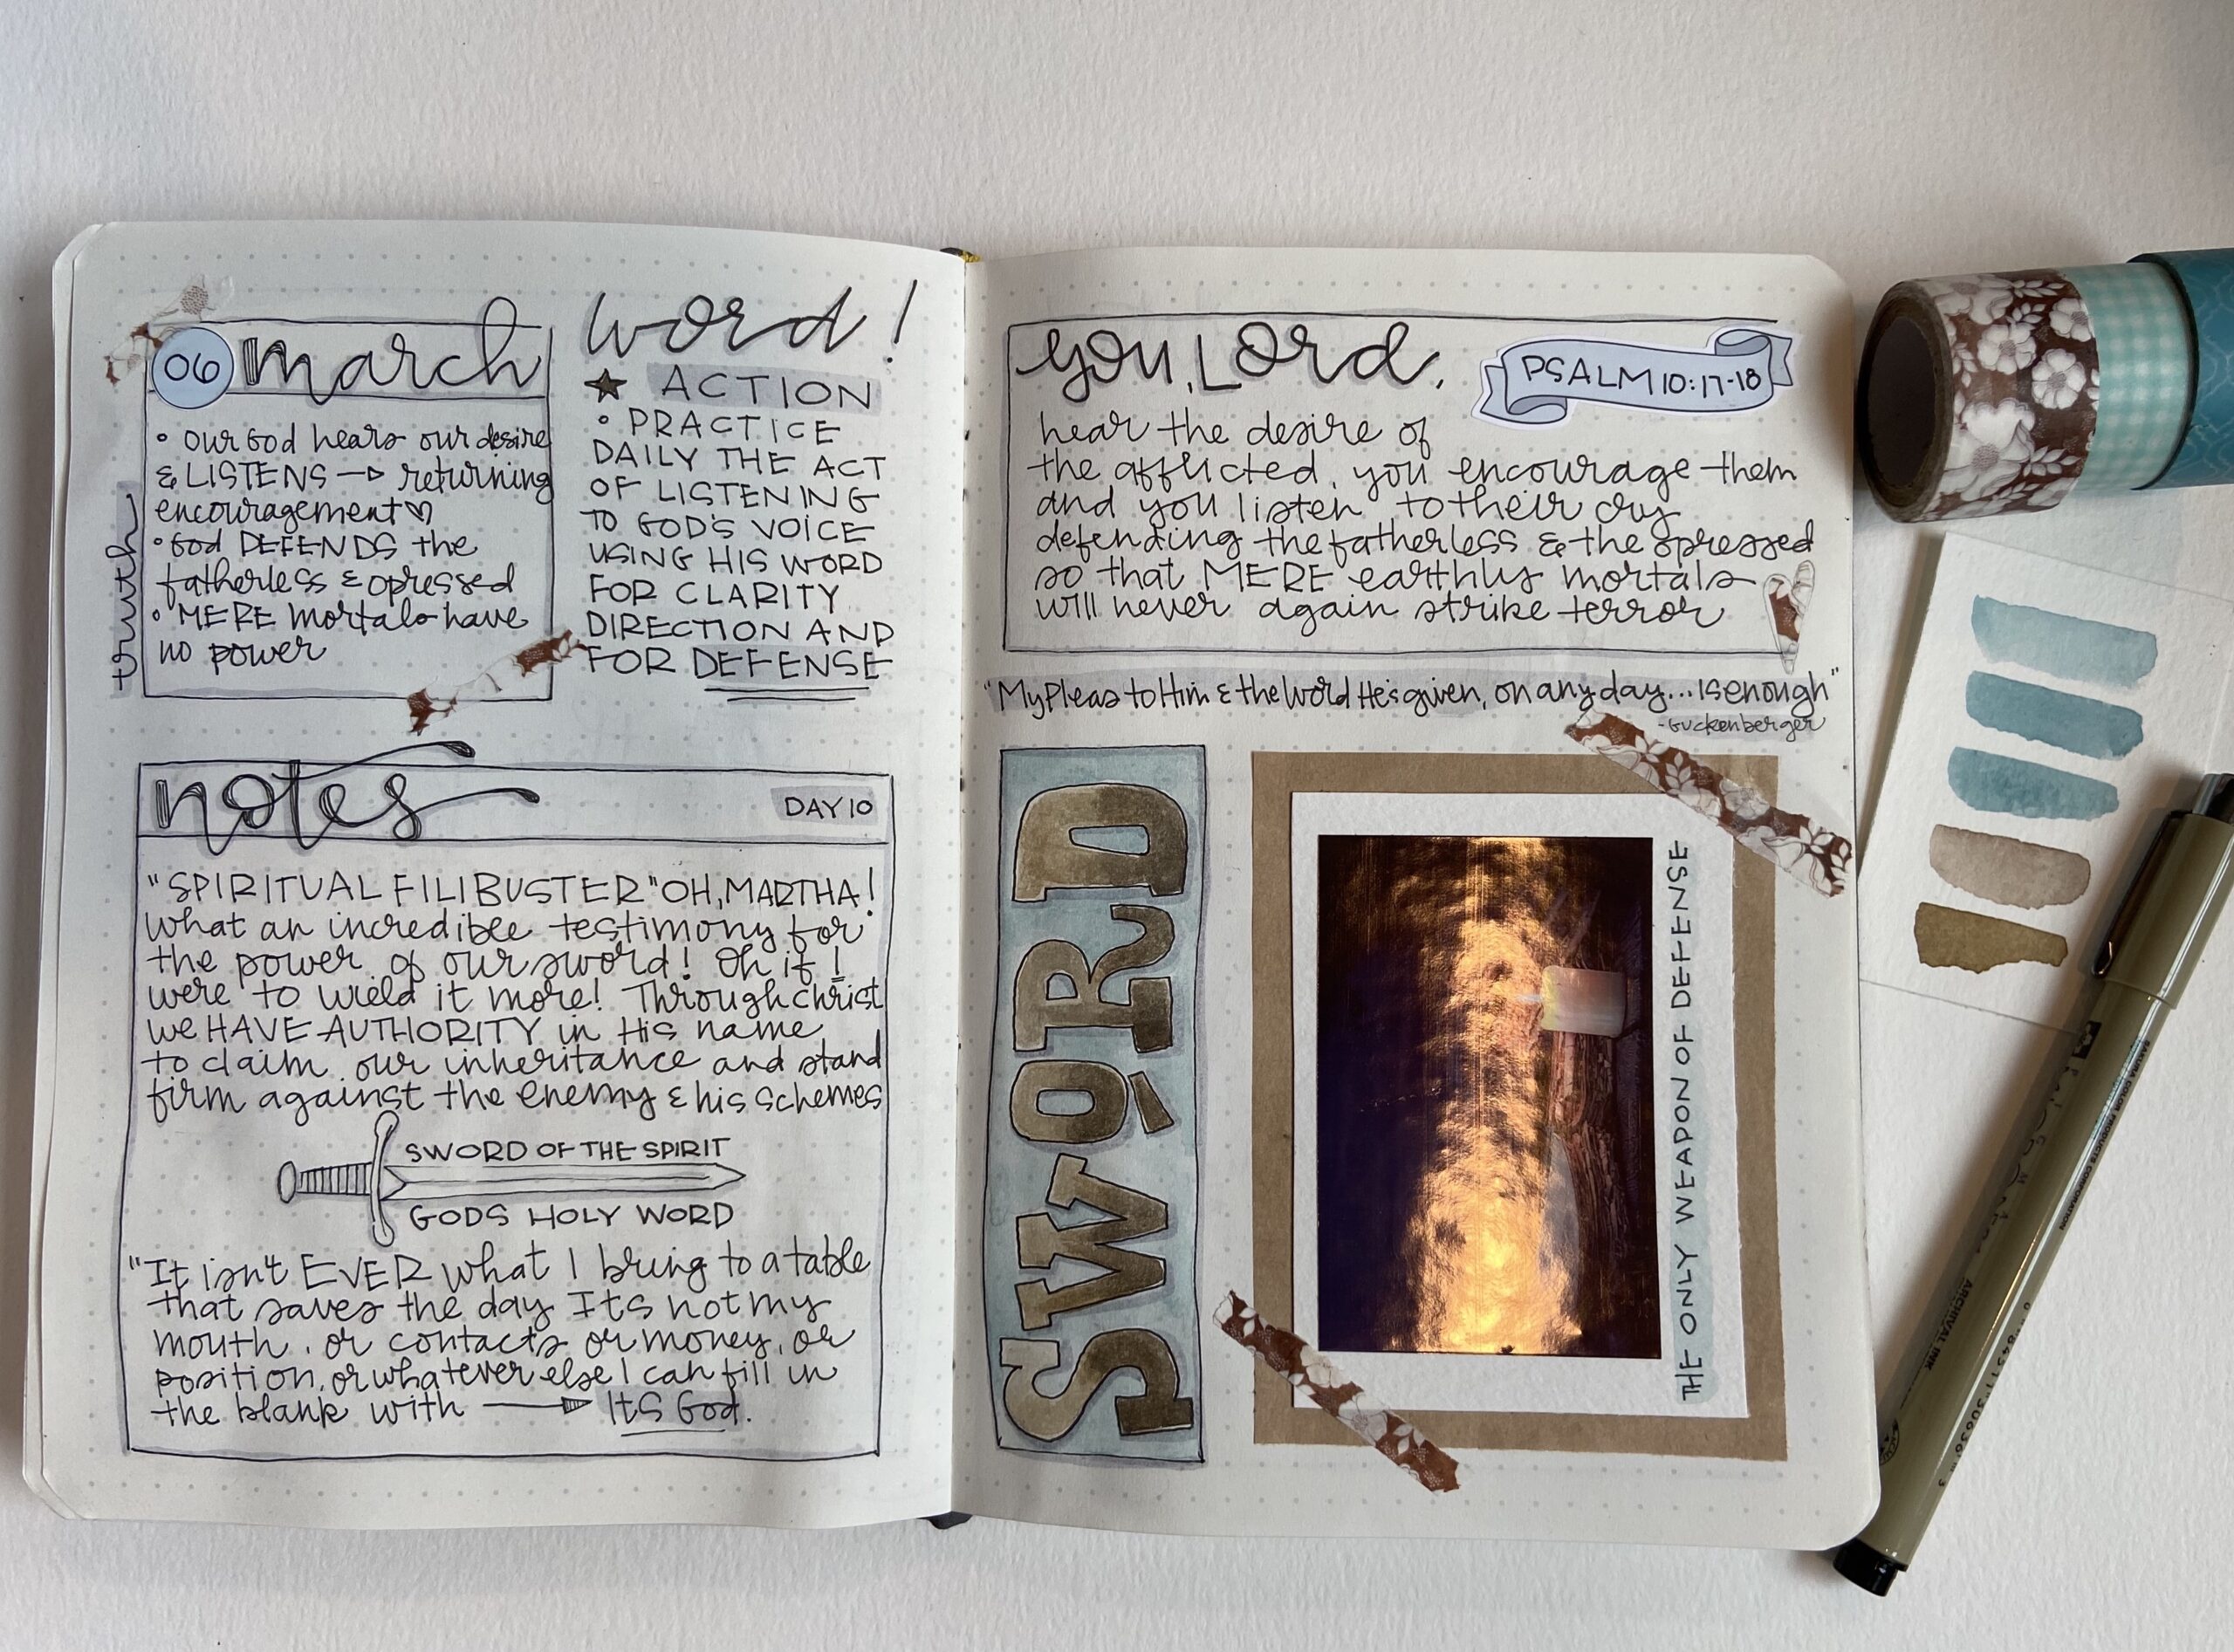 06 march
• our God hears our desire
& LISTENS → returning
encouragement ♡
• God DEFENDS the
fatherless & opressed
• MERE mortals have
no power
truth
word!
★ ACTION
• PRACTICE
DAILY THE ACT
OF LISTENING
TO GOD'S VOICE
USING HIS WORD
FOR CLARITY
DIRECTION AND
FOR DEFENSE
notes
DAY 10
"SPIRITUAL FILIBUSTER" OH, MARTHA!
what an incredible testimony for
the power of our sword! Oh if I
were to wield it more! Through Christ
we HAVE AUTHORITY in His name
to claim our inheritance and stand
firm against the enemy & his schemes
SWORD OF THE SPIRIT
GODS HOLY WORD
"It isn't EVER what I bring to a table
that saves the day Its not my
mouth, or contacts or money, or
position, or whatever else I can fill in
the blank with → Its God.
you, Lord,
PSALM 10:17-18
hear the desire of
the afflicted, you encourage them
and you listen to their cry
defending the fatherless & the opressed
so that MERE earthly mortals
will never again strike terror
"My Pleas to Him & the Word He's given, on any day... Is enough"
-Guckenberger
SWORD
THE ONLY WEAPON OF DEFENSE
SAKURA COLOR PRODUCTS CORPORATION
ARCHIVAL INK